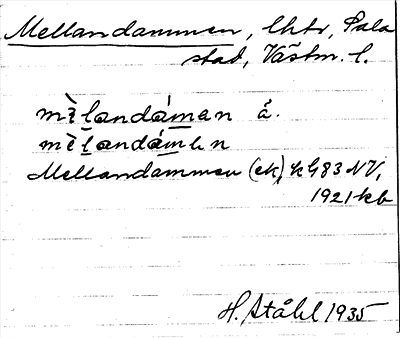 Mellandammen, lhtr, Sala
stad, Västm. l.
mèlandámən å.
mèlandámən
Mellandammen (ek) k G83 NV,
1921 kb
H. Ståhl 1935